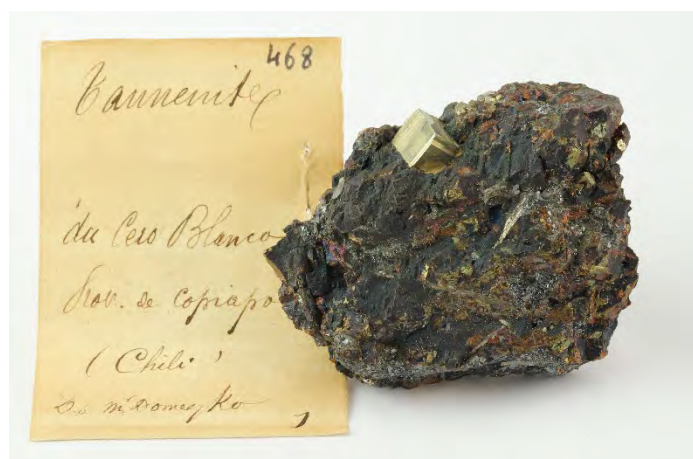 468
Tannenite
du Cero Blanco
Prov. de Copiapo
(Chili)
Domeyko